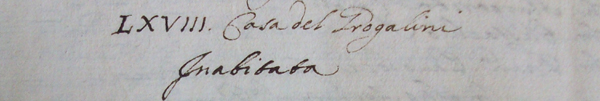 LXVIII. Casa del Progalini
Inabitata